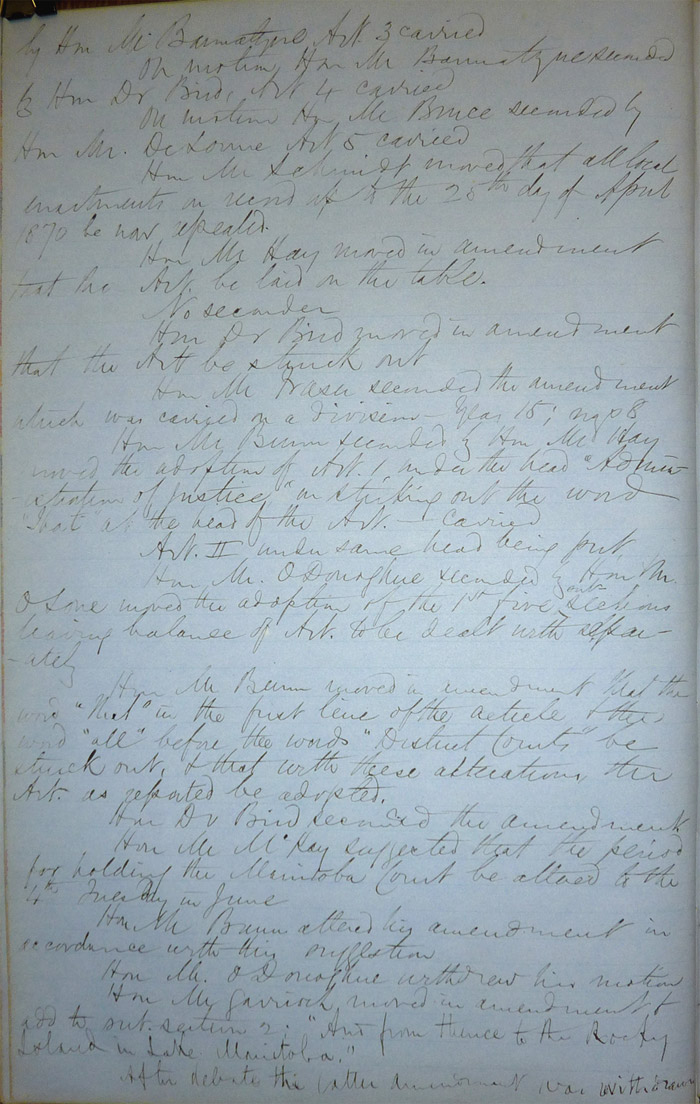 by Hon Mr Bannatyne Art 3 carried
On motion Hon Mr Bannatyne seconded
by Hon Dr Bird, Art 4 carried
On motion Hon Mr Bruce seconded by
Hon Mr. DeLorme Art 5 carried
Hon Mr Schmidt moved that all local
enactments on record up to the 25th day of April
1870 be now repealed.
Hon Mr Hay moved in amendment
that the Art. be laid on the table.
No seconder
Hon Dr Bird moved in amendment
that the Art be struck out
Hon Mr Fraser seconded the amendment
which was carried on a division - Yeas 15; nays 8
Hon Mr Bunn seconded by Hon Mr Hay
moved the adoption of Art. 1, under the head "Admin-
istration of Justice," on striking out the word
"That" at the head of the Art. - carried
Art. II under same head being put
Hon Mr. O'Donoghue seconded by Hon Mr.
DLorme moved the adoption of the 1st five sub-sections
leaving balance of Art. to be dealt with separ-
-ately
Hon Mr Bunn moved in amendment that the
word "that" in the first line of the article & the
word "all" before the words "District Courts" be
struck out, & that with these alterations the
Art. as reported be adopted.
Hon Dr Bird seconded the amendment
Hon Mr McKay suggested that the period
for holding the Manitoba Court be altered to the
4th Tuesday in June
Hon Mr Bunn altered his amendment in
accordance with this suggestion
Hon Mr. O'Donoghue withdrew his motion
Hon Mr Garrioch moved in amendment to
add to sub. section 2: "And from thence to the Rocky
Island in Lake Manitoba."
After debate the latter amendment was withdrawn